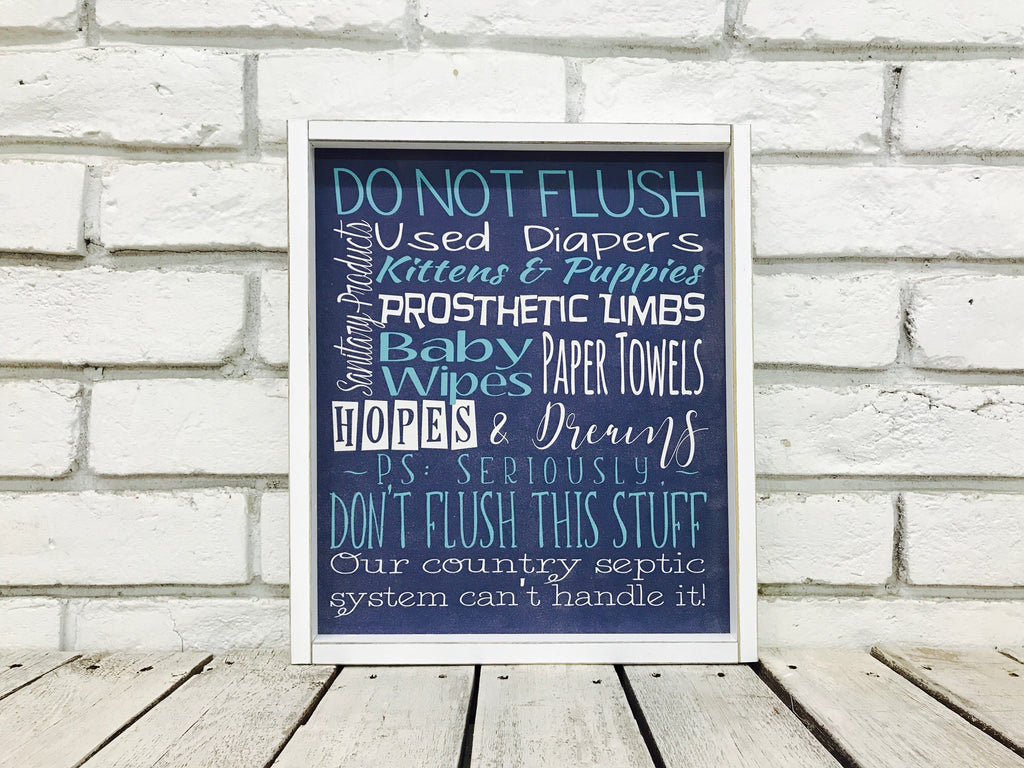 DO NOT FLUSH
Sanitary Products
Used Diapers
Kittens & Puppies
PROSTHETIC LIMBS
Baby Wipes
PAPER TOWELS
HOPES & Dreams
~PS: SERIOUSLY,~
DON'T FLUSH THIS STUFF
Our country septic
system can't handle it!